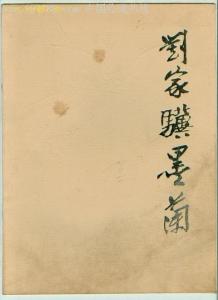 劉家驥墨蘭